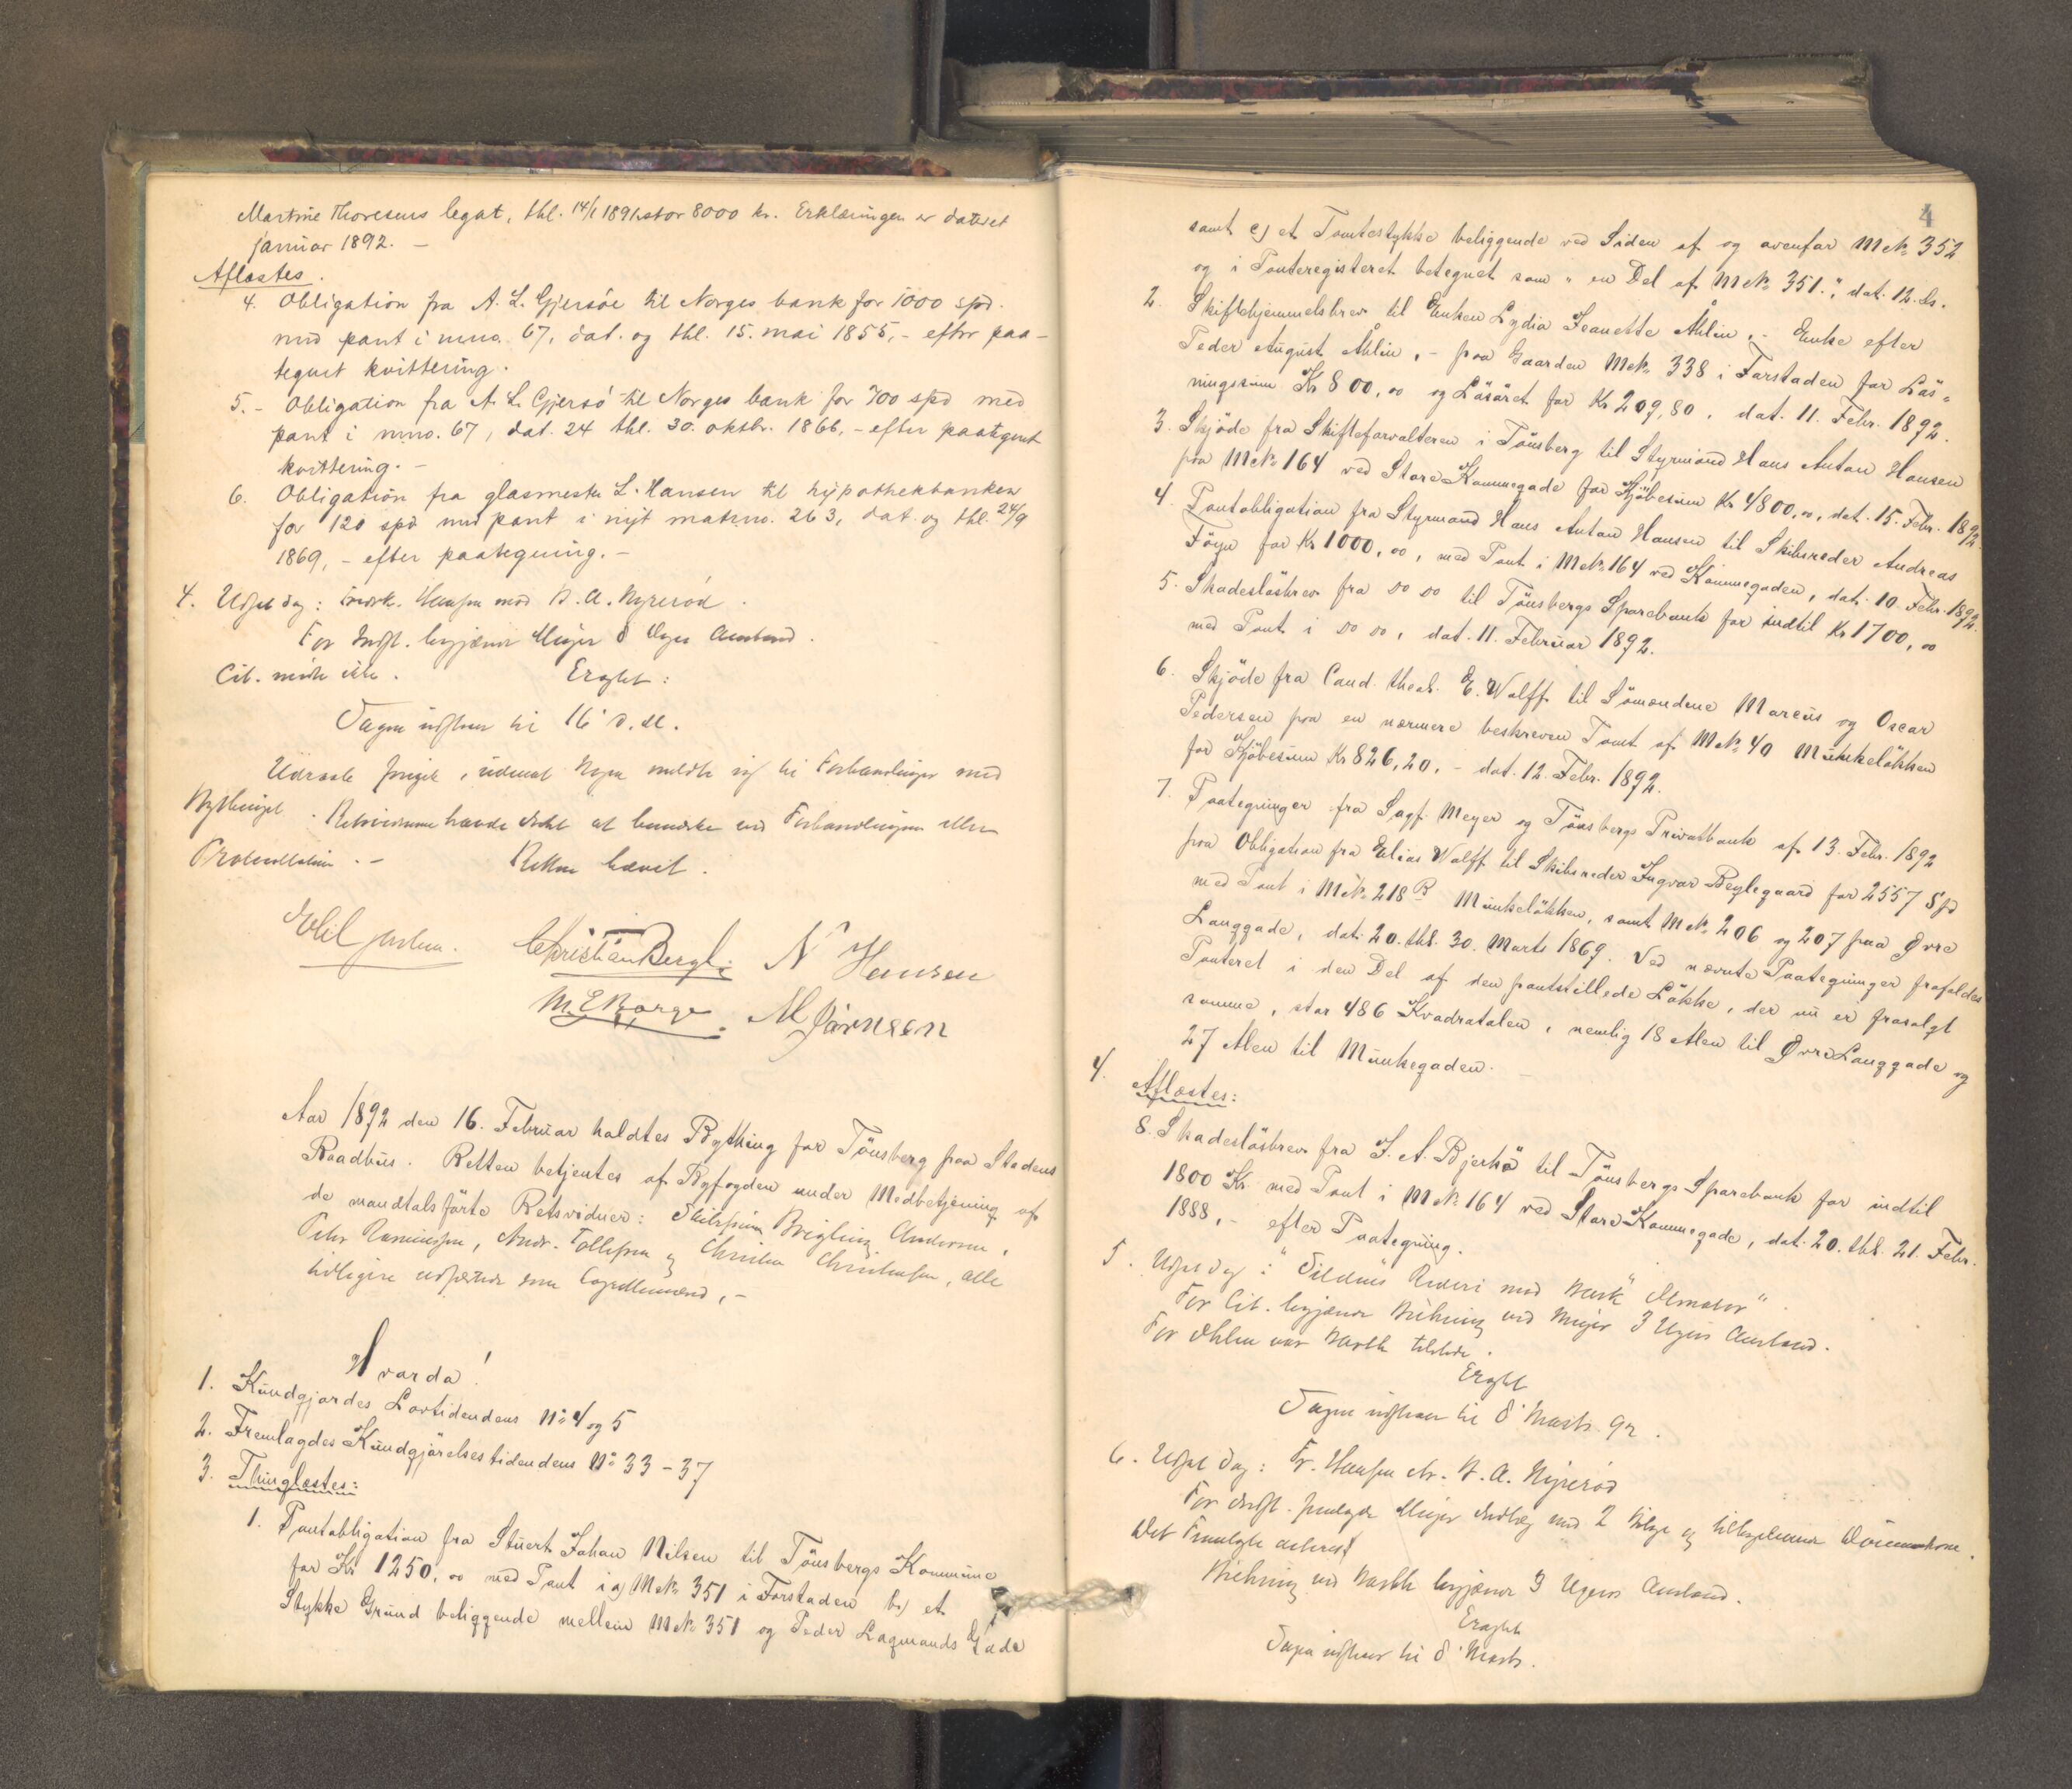 Martine Thoresens legat, thl. 14/1 1891 stor 8000 kr. Erklæringen er dateret
januar 1892. –
Aflæstes.
4. Obligation fra A. L. Gjersøe til Norges bank for 1000 spd.
med pant i mno. 67, dat. og thl. 15. mai 1855, – efter paa-
tegnet kvittering.
5. – Obligation fra A. L. Gjersø til Norges bank for 700 spd med
pant i mno. 67, dat. 24 thl. 30. oktbr. 1866, – efter paategnet
kvittering. –
6. Obligation fra glasmester L. Hansen til hypothekbanken
for 120 spd med pant i nyt matrno. 263, dat. og thl. 24/9
1869, – efter paategning. –
4. Udsat Sag: Hansen mod A. Nyrerød.
For begjærer Meyer 8 Dages Anstand.
Cit. mødte ikke. Eragtet:
Sagen udstaar til 16 d. M.
Udraab foregik, uden at Nogen meldte sig til Forhandlinger ved
Bythinget. Retsvidnerne havde Intet at bemærke ved Forhandlingen eller
Protocollationen. – Retten hævet.
Christian Bergh. N Hansen
M. E. Borge. M Jörnsen
Aar 1892 den 16. Februar holdtes Bything for Tönsberg paa Stadens
Raadhus. Retten betjentes af Byfogden under Medbetjening af
de mandtalsförte Retsvidner: Andersen,
Peter Rasmussen, Andr. Tollefsen og Christen Christensen, alle
tidligere edfæstede som Lagrettemænd, –
Hvorda!
1. Kundgjordes Lovtidendens No 4 og 5
2. Fremlagdes Kundgjörelsestidendens No 33 – 37
3. Thinglæstes:
1. Pantobligation fra Stuert Johan Nilsen til Tönsbergs Kommune
for Kr 1250,00 med Pant i a) M No 351 i Forstaden b) et
Stykke Grund beliggende mellem M No 351 og Peder Lagmands Gade
4
samt c) et Tomtestykke beliggende ved Siden af og ovenfor M No 352
og i Panteregisteret betegnet som "en Del af M No 351.", dat. 12. ds.
2. Skiftehjemmelsbrev til Enken Lydia Jeanette Åhlin, – Enke efter
Peder August Åhlin, – paa Gaarden M No 338 i Forstaden for Lös=
ningssum Kr 800,00 og Lösöret for Kr 209,80, dat. 11. Febr. 1892.
3. Skjöde fra Skifteforvalteren i Tönsberg til Styrmand Hans Anton Hansen
paa M No 164 ved Store Kammegade for Kjöbesum Kr 4800,00, dat. 15. Febr. 1892.
4. Pantobligation fra Styrmand Hans Anton Hansen til Skibsreder Andreas
Föyn for Kr 1000,00, med Pant i M No 164 ved Kammegaden, dat. 10. Febr. 1892.
5. Skadeslösbrev fra do do til Tönsbergs Sparebank for indtil Kr 1700,00
med Pant i do do, dat. 11. Februar 1892.
6. Skjöde fra Cand. theol. E. Wolff til Sömændene Marcus og Oscar
Pedersen paa en nærmere beskreven Tomt af M No 40 Munkelökken
for Kjöbesum Kr 826,20, – dat. 12. Febr. 1892.
7. Paategninger fra Sagf. Meyer og Tönsbergs Privatbank af 13. Febr. 1892
paa Obligation fra Elias Wolff til Skibsreder Ingvar Beylegaard for 2557 Spd
med Pant i M No 218 B Munkelökken, samt M No 206 og 207 paa Øvre
Langgade, dat. 20. thl. 30. Marts 1869. Ved nævnte Paategninger frafaldes
Panteret i den Del af den pantstillede Lökke, der nu er frasolgt
samme, stor 486 Kvadratalen, nemlig 18 Alen til Øvre Langgade og
27 Alen til Munkegaden. –
4. Aflæstes:
8. Skadeslösbrev fra J. A. Bjerkö til Tönsbergs Sparebank for indtil
1800 Kr. med Pant i M No 164 ved Store Kammegade, dat. 20. thl. 21. Febr.
1888, – efter Paategning.
5. Udsat Sag: Rederi mod Bark "Elmator".
For Cit. begjærede ved Meyer 3 Ugers Anstand.
For var tilstede.
Eragtet
Sagen udstaar til 8 Marts 92.
6. Udsat Sag: Fr. Hansen ctr. A. Nyrerød
For fremlagde Meyer Indlæg med 2 Bilage og
Det Fremlagte
ved begjærede 3 Ugers Anstand.
Eragtet
Sagen udstaar til 8 Marts.